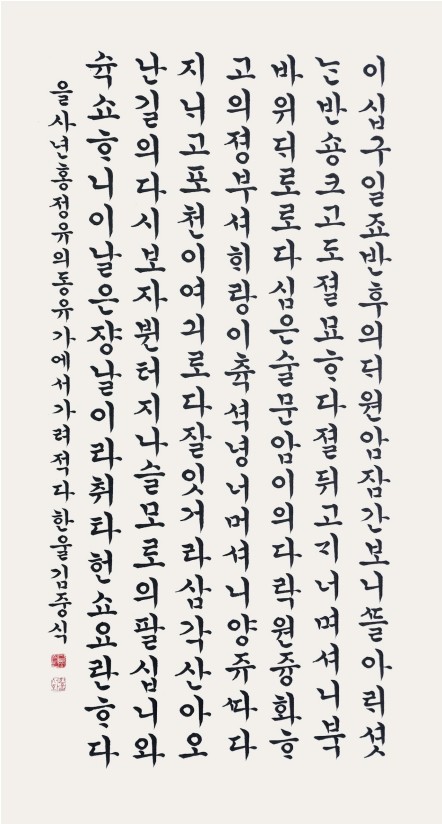 이십구일죠반후의ᄃᆡ원암잠간보니ᄯᅳᆯ아ᄅᆡ셧
ᄂᆞᆫ반숑크고도졀묘ᄒᆞ다졀뒤고ᄀᆡ너며셔니북
바위ᄃᆡ로로다심은술문암이의다락원즁화ᄒᆞ
고의졍부셔ᄒᆡ랑이츅셕녕너머셔니양쥬ᄯᅡ다
지ᄂᆡ고포쳔이여긔로다잘잇거라삼각산아오
난길의다시보자뷘터지나슬모로의팔십니와
슉쇼ᄒᆞ니이날은쟝날이라취타헌쇼요란ᄒᆞ다
을사년홍정유의동유가에서가려적다한울김중식